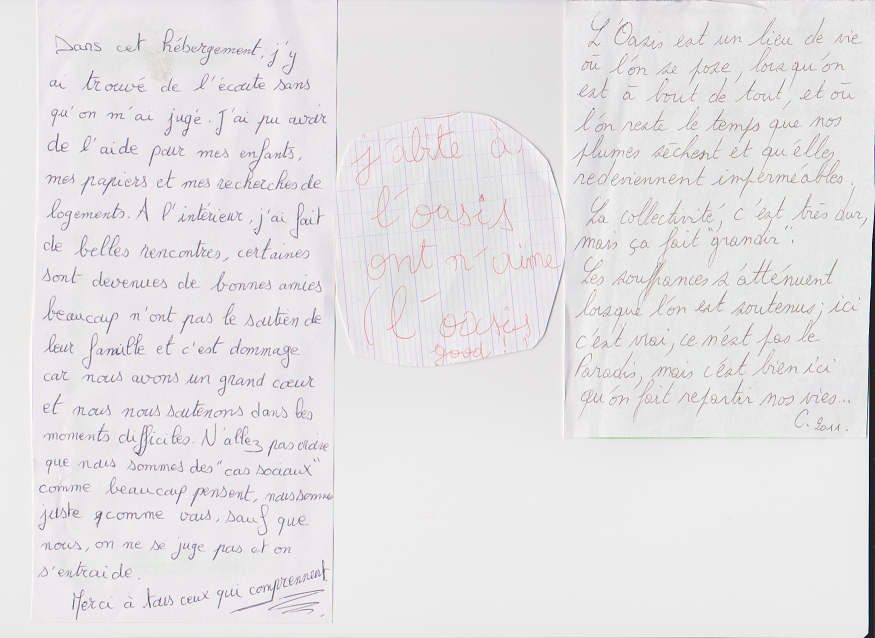 Dans cet hébergement, j'y
ai trouvé de l'écoute sans
qu'on m'ai jugé. J'ai pu avoir
de l'aide pour mes enfants,
mes papiers et mes recherches de
logements. A l'intérieur, j'ai fait
de belles rencontres, certaines
sont devenues de bonnes amies
beaucoup n'ont pas le soutien de
leur famille et c'est dommage
car nous avons un grand cœur
et nous nous soutenons dans les
moments difficiles. N'allez pas croire
que nous sommes des "cas sociaux"
comme beaucoup pensent, nous sommes
juste comme vous, sauf que
nous, on ne se juge pas et on
s'entraide.
Merci à tous ceux qui comprennent.
j'abite à
l'oasis
ont n'aime
(l'oasis
good !!
L'Oasis est un lieu de vie
où l'on se pose, lorsqu'on
est à bout de tout, et où
l'on reste le temps que nos
plumes sèchent et qu'elles
redeviennent imperméables.
La collectivité, c'est très dur,
mais ça fait "grandir".
Les souffrances s'atténuent
lorsque l'on est soutenus ; ici
c'est vrai, ce n'est pas le
Paradis, mais c'est bien ici
qu'on fait repartir nos vies...
C. 2011.